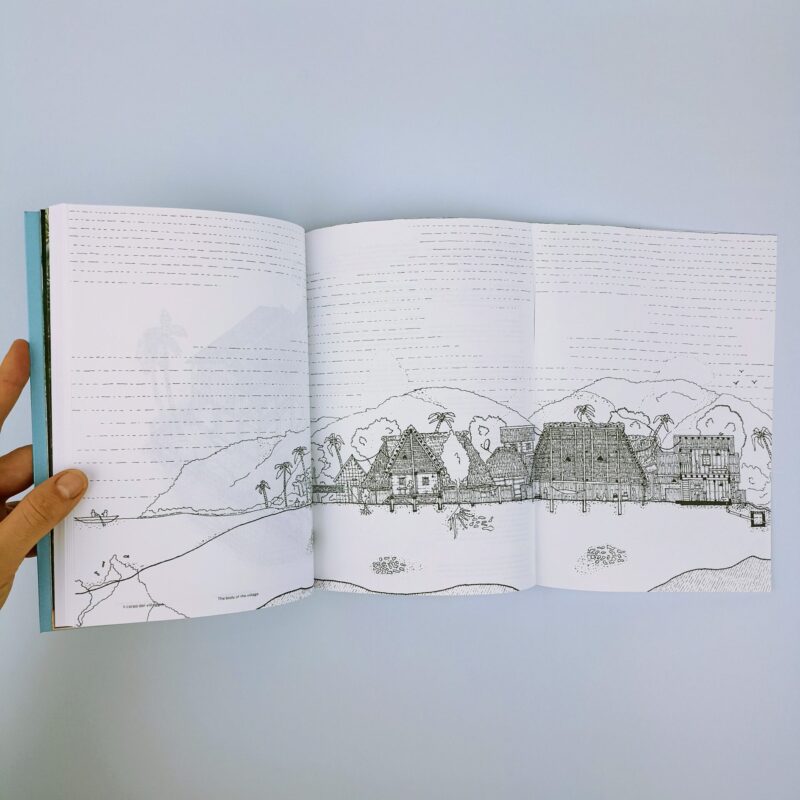 Il corpo del villaggio
The body of the village